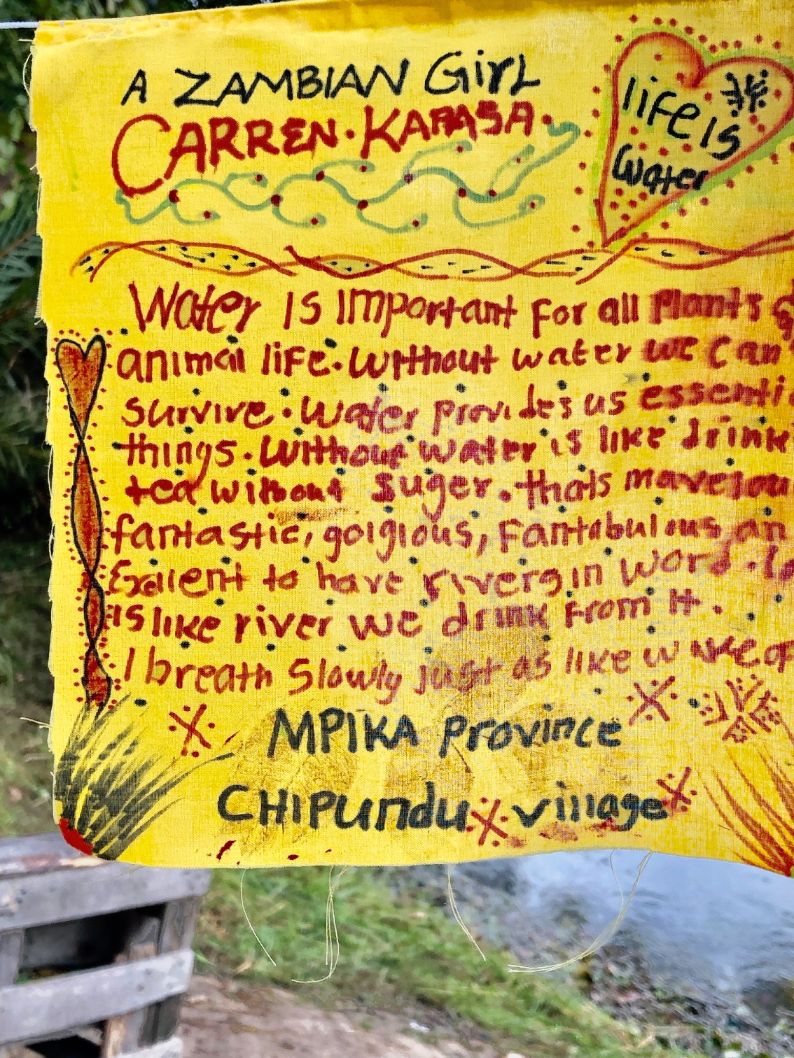 A ZAMBIAN GirL
CARREN. KAPASA.
life Is
Water
Water Is Important For all Plants &
animal life. Without water we can
survive. Water provides us essenti
things. Without water is like drink
tea without suger. thats mavelou
fantastic, golgious, Fantabulous, an
Exalent to have rivers in word.
is like river we drink from it.
I breath Slowly just as like of
MPIKA Province
CHIPUndu village